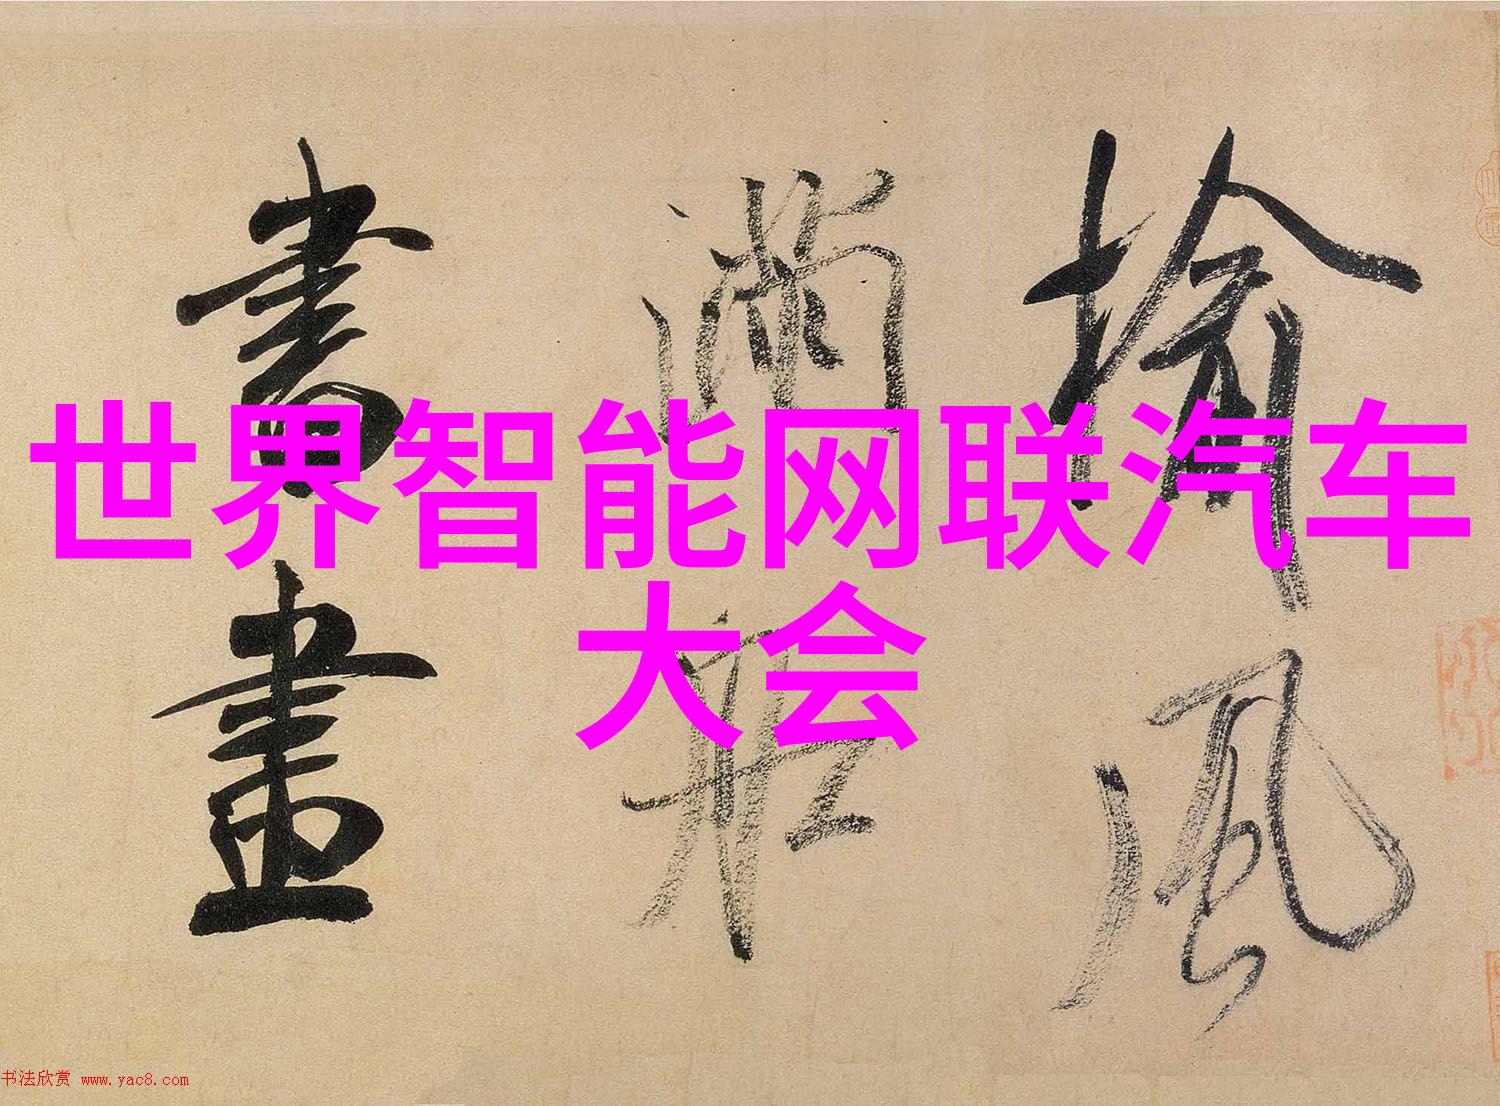 世界智能网联汽车
大会
榆風
滿船
書畫
书法欣赏 www.yac8.com